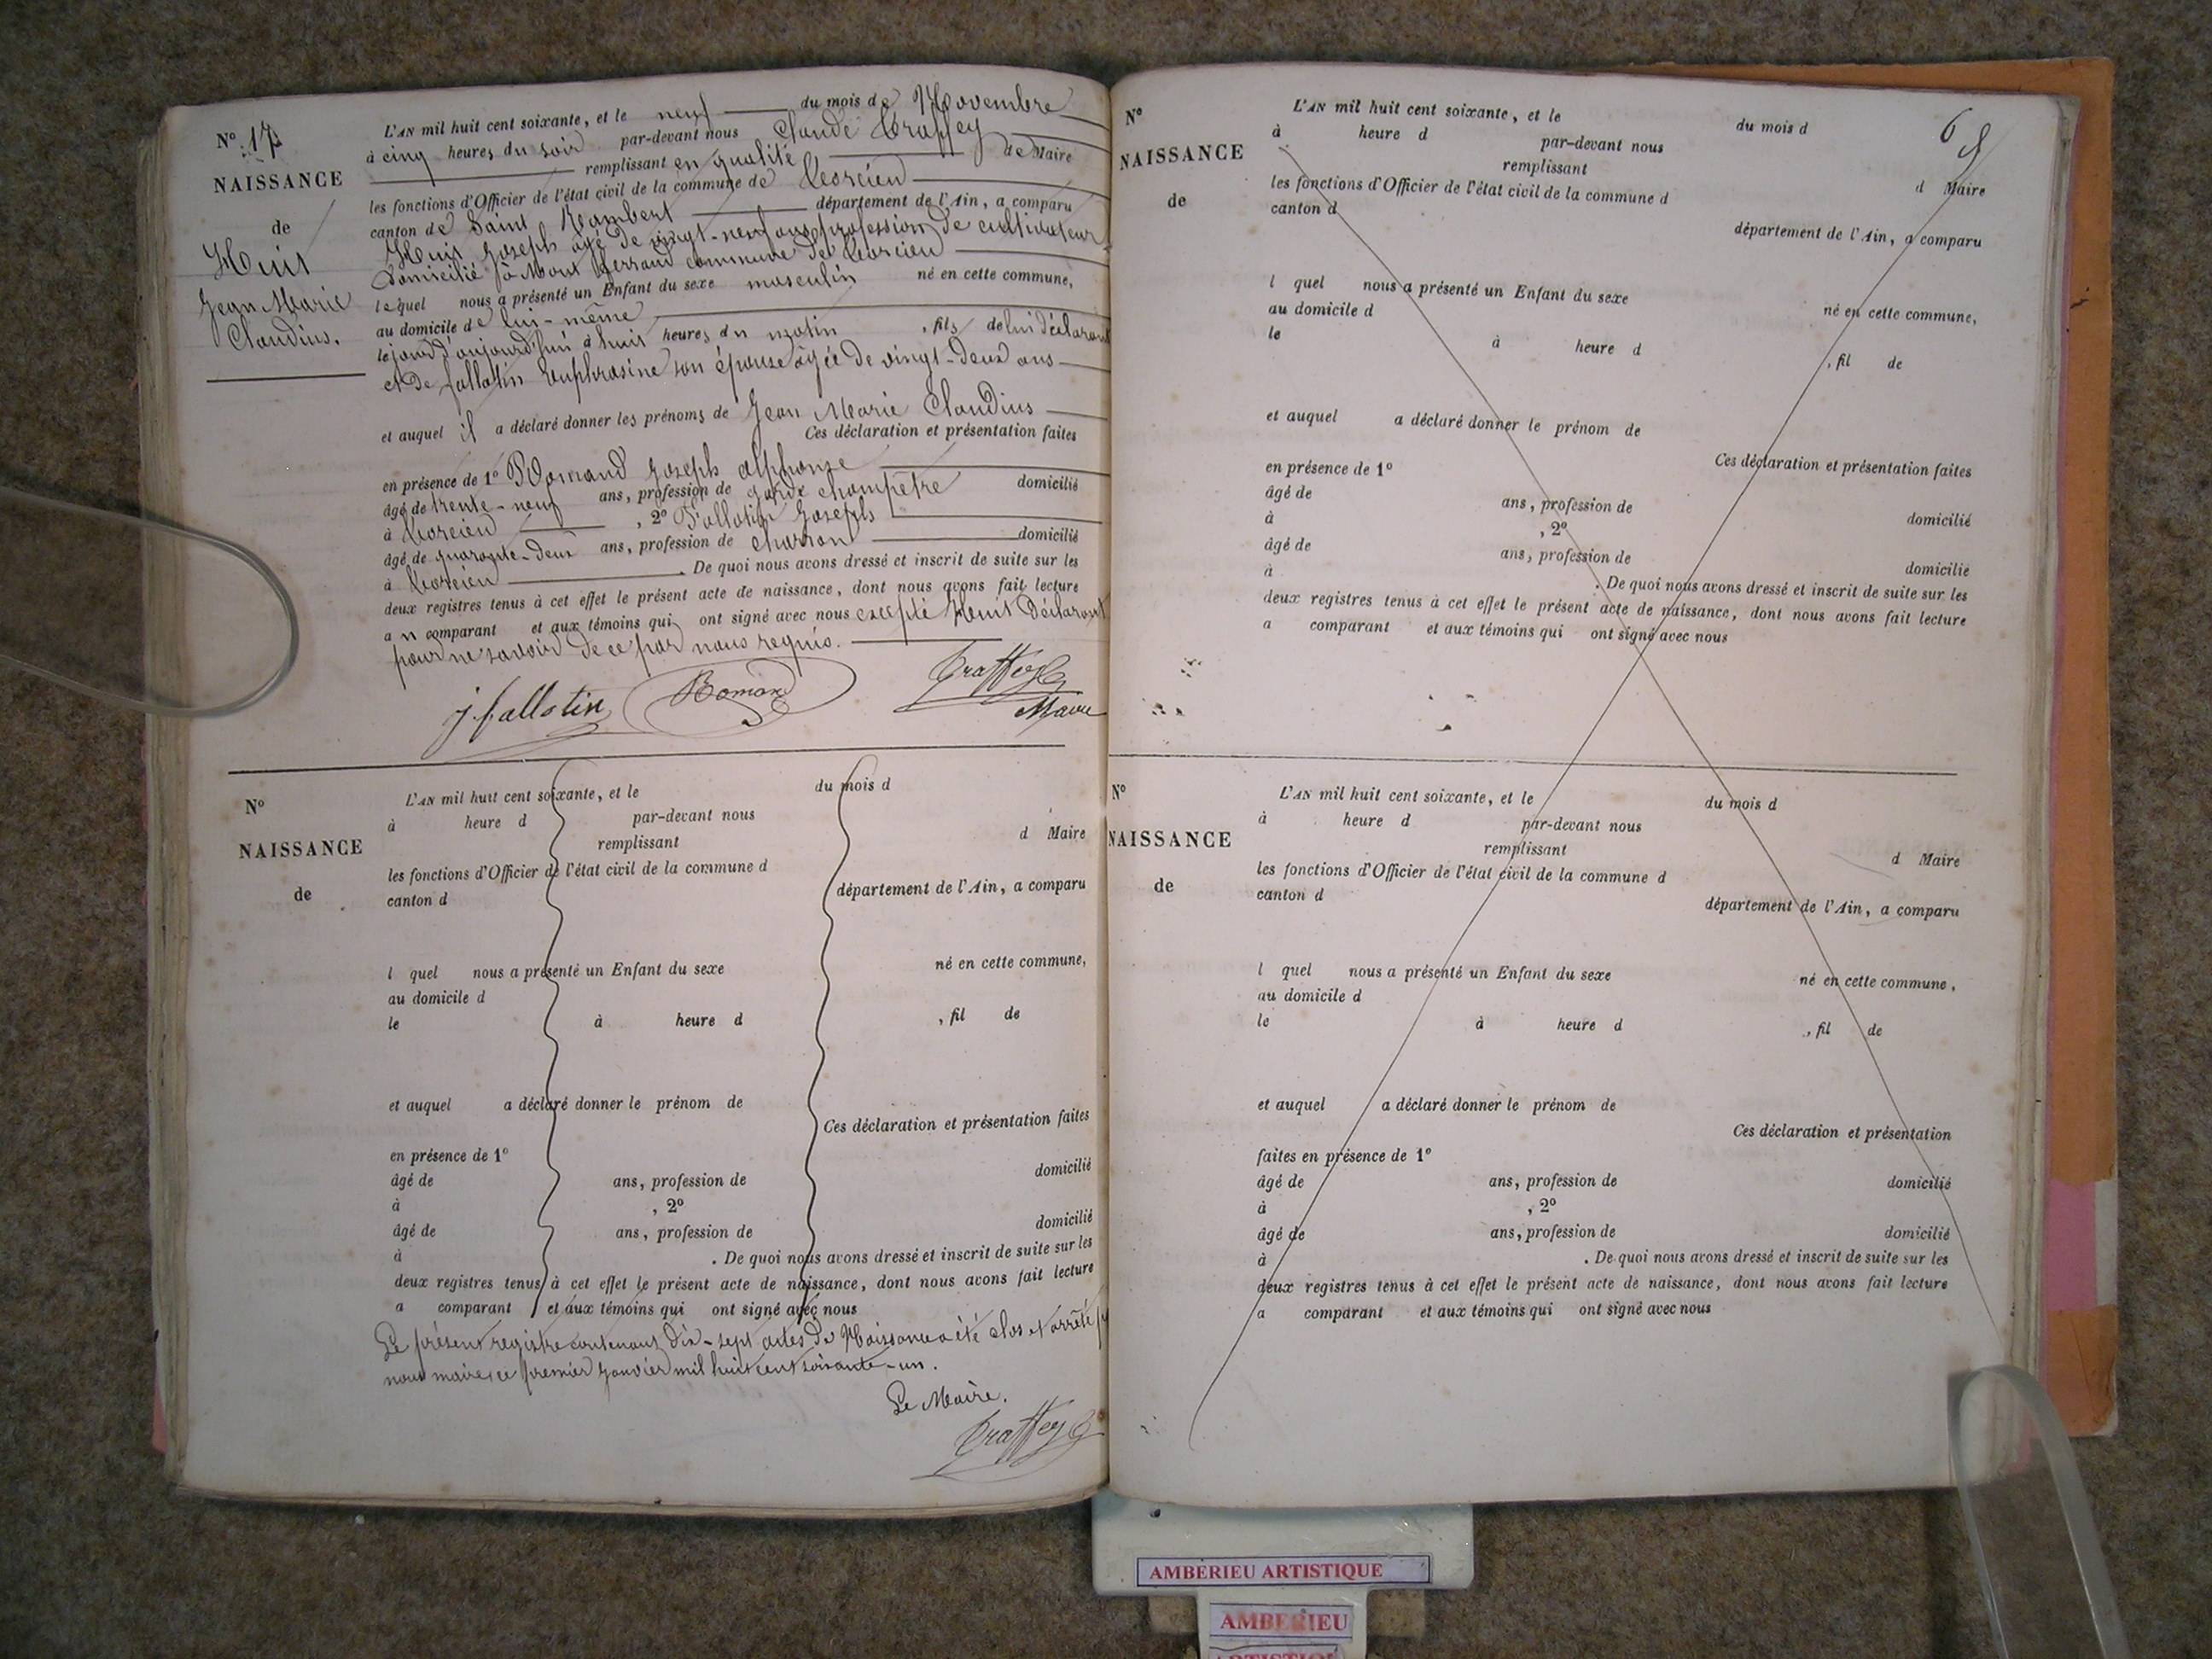 N° 17
NAISSANCE
de
Huit
Jean Marie
Claudius.
L'AN mil huit cent soixante, et le neuf du mois de Novembre
à cinq heures du soir par-devant nous Claude Traffey
remplissant en qualité de Maire
les fonctions d'Officier de l'état civil de la commune de Torcieu
canton de Saint Rambert département de l'Ain, a comparu
Huit Joseph âgé de vingt-neuf ans profession de cultivateur
domicilié à Mont ferrand commune de Torcieu
lequel nous a présenté un Enfant du sexe masculin né en cette commune,
au domicile de lui-même
le jour d'aujourd'hui à huit heures du matin , fils de lui déclarant
et de fallatin Euphrosine son épouse âgée de vingt-deux ans
et auquel il a déclaré donner les prénoms de Jean Marie Claudius
Ces déclaration et présentation faites
en présence de 1° Romand Joseph alphonse
âgé de trente-neuf ans, profession de garde champêtre domicilié
à Torcieu , 2° Fallatin Joseph
âgé de quarante-deux ans, profession de charron domicilié
à Torcieu . De quoi nous avons dressé et inscrit de suite sur les
deux registres tenus à cet effet le présent acte de naissance, dont nous avons fait lecture
au comparant et aux témoins qui ont signé avec nous excepté Huit Déclarant
pour ne savoir de ce par nous requis.
J fallatin Romand Traffey
Maire
N°
NAISSANCE
de
L'AN mil huit cent soixante, et le du mois d
à heure d par-devant nous
remplissant d Maire
les fonctions d'Officier de l'état civil de la commune d
canton d département de l'Ain, a comparu
l quel nous a présenté un Enfant du sexe né en cette commune,
au domicile d
le à heure d , fil de
et auquel a déclaré donner le prénom de
Ces déclaration et présentation faites
en présence de 1°
âgé de ans, profession de domicilié
à , 2°
âgé de ans, profession de domicilié
à . De quoi nous avons dressé et inscrit de suite sur les
deux registres tenus à cet effet le présent acte de naissance, dont nous avons fait lecture
a comparant et aux témoins qui ont signé avec nous
Le présent registre contenant dix-sept actes de Naissance a été clos et arrêté p
nous maire, ce premier Janvier mil huit cent soixante-un.
Le Maire.
Traffey
N°
NAISSANCE
de
L'AN mil huit cent soixante, et le du mois d
à heure d par-devant nous
remplissant d Maire
les fonctions d'Officier de l'état civil de la commune d
canton d département de l'Ain, a comparu
l quel nous a présenté un Enfant du sexe né en cette commune,
au domicile d
le à heure d , fil de
et auquel a déclaré donner le prénom de
Ces déclaration et présentation faites
en présence de 1°
âgé de ans, profession de domicilié
à , 2°
âgé de ans, profession de domicilié
à . De quoi nous avons dressé et inscrit de suite sur les
deux registres tenus à cet effet le présent acte de naissance, dont nous avons fait lecture
a comparant et aux témoins qui ont signé avec nous
N°
NAISSANCE
de
L'AN mil huit cent soixante, et le du mois d
à heure d par-devant nous
remplissant d Maire
les fonctions d'Officier de l'état civil de la commune d
canton d département de l'Ain, a comparu
l quel nous a présenté un Enfant du sexe né en cette commune,
au domicile d
le à heure d , fil de
et auquel a déclaré donner le prénom de
Ces déclaration et présentation
faites en présence de 1°
âgé de ans, profession de domicilié
à , 2°
âgé de ans, profession de domicilié
à . De quoi nous avons dressé et inscrit de suite sur les
deux registres tenus à cet effet le présent acte de naissance, dont nous avons fait lecture
a comparant et aux témoins qui ont signé avec nous
AMBERIEU ARTISTIQUE
AMBERIEU
ARTISTIQUE